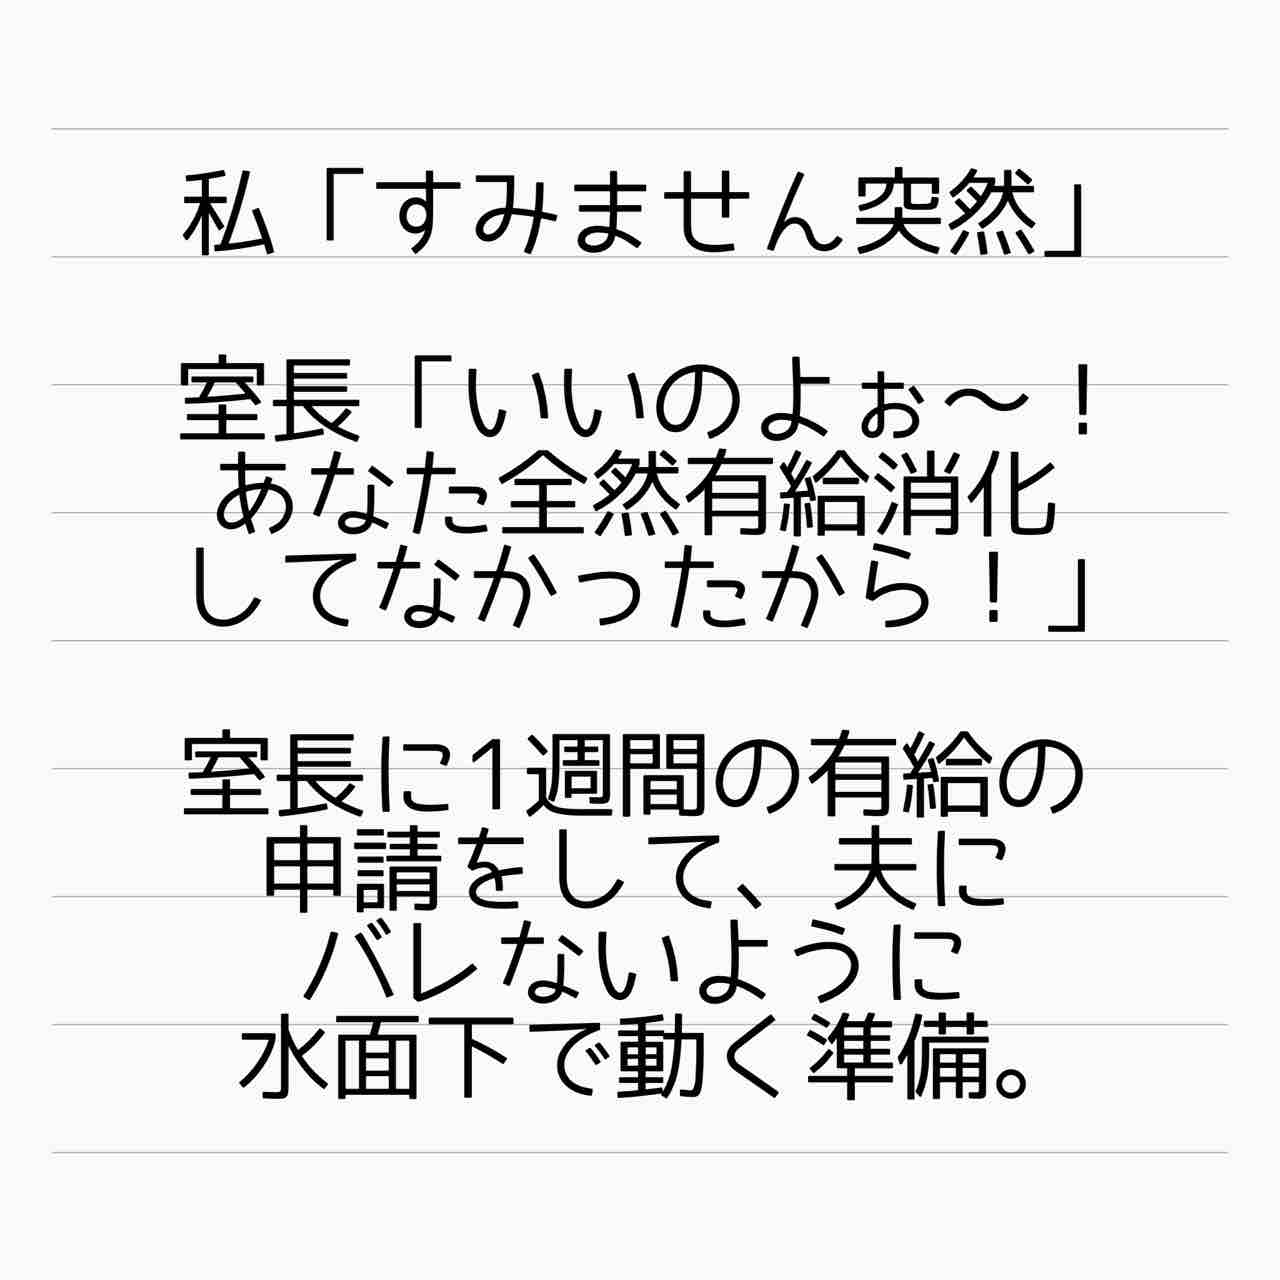 私「すみません突然」
室長「いいのよぉ〜！
あなた全然有給消化
してなかったから！」
室長に1週間の有給の
申請をして、夫に
バレないように
水面下で動く準備。